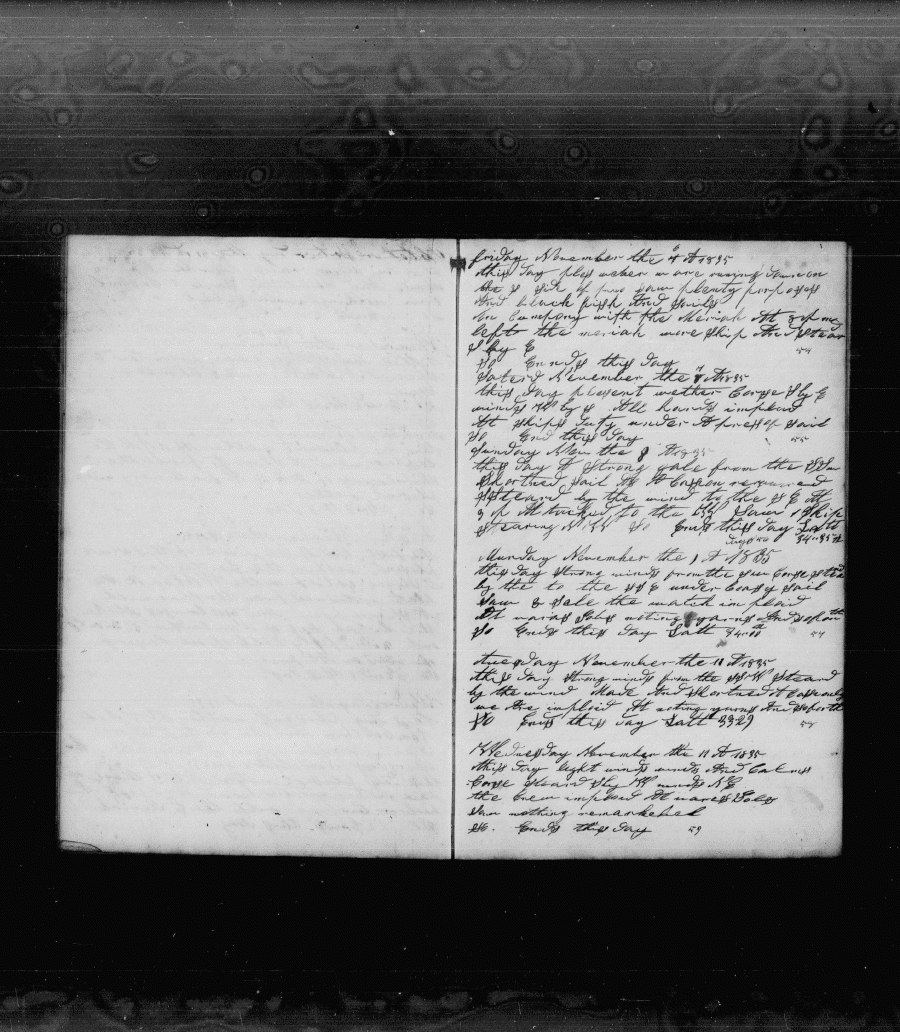 friday November the 6 A 1835
this day ples weher w are runing down on
the s side of saw plenty porposes
And black fish And Sails
in Company with the Meriah At 3 pm
left the meriah wore ship And Stear
S by E
So Ennds this day
Saterd November the 7 A 1835
this day plesent wether Corse S by E
winds W by S All hands imploid
At Ships duty under A pres of Sail
So End this day 55
Sunday Nov the 8 A 1835
this day A Strong gale from the SSW
Shortned Sail As A Casion required
Steard by the wind to the S E At
3 p M tacked to the W Saw 1 Ship
Stearing N W So Ends this day Latt
days 56 34-35
Munday November the 9 A 1835
this day Strong winds from the SW Corse Steard
by the to the SSE under Easy Sail
Saw 2 Sale the watch imploid
At Jobs noting yarns And so forth
So Ends this day Latt 34-00 57
tuesday November the 10 A 1835
this day Strong winds from the SSW Steard
by the wind Made And Shortned A Casionly
we Are imploid At noting yarns And So forth
So Ends this day Latt 3329 58
Wednesday November the 11 A 1835
this day light winds And Calms
Corse Steard S by W winds N E
the Crew imploid At Jobs
Saw nothing remarkebel
So. Ends this day 59